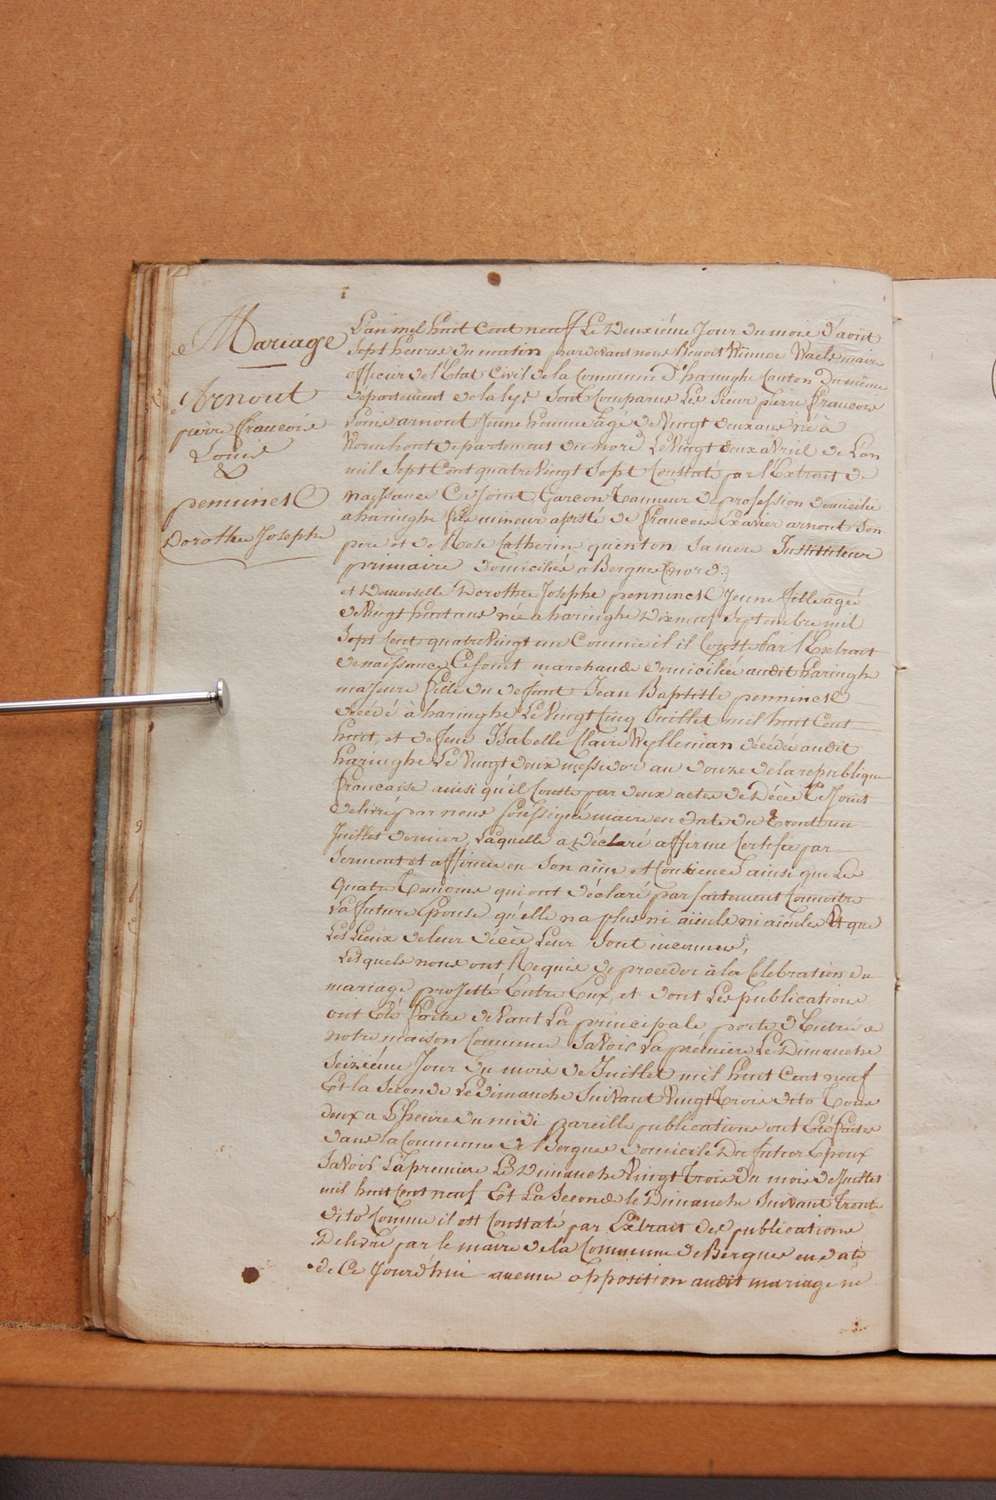 Mariage
Arnout
pierre francois
Louis
&
pemninck
Dorothee Josephe
L'an mil huit Cent neuf Le Deuxiéme Jour du mois d'août
Sept heures du matin pardevant nous Benoit Waels maire
officier de l'Etat Civil de la Commune D'haringhe Canton Du même
Departement de la lys sont Comparus Le Sieur pierre francois
Louis arnout Jeune homme agé de Vingt deux ans né à
departement du nord Le Vingt deux avril de L'an
mil Sept Cent quatre Vingt Sept Constaté par l'Extrait de
naissance Ci Joint Garcon Tanneur de profession domicilié
a haringhe fils mineur de francois Xavier arnout Son
pere et de Rose Catherin quenton Sa mere Instituteur
primaire domiciliés à Bergues (nord:)
et Demoiselle Dorothe Josephe penninck Jeune fille agée
de Vingt huit ans née a haringhe Dix neuf Septembre mil
Sept Cent quatre Vingt un Comme il Conste par l'Extrait
de naissance Ci Joint marchande domiciliée audit haringhe
majeure fille du deffunt Jean Baptiste penninck
décédé à haringhe Le Vingt Cinq Juillet mil huit Cent
huit, et de feue Isabelle Claire Wylleman décédée audit
haringhe Le Vingt deux messidor an douze de la republique
francaise ainsi qu'il Conste par deux actes de Décès Ci Joints
delivré par nous soussigné maire en date du Trente un
Juillet dernier, Laquelle a déclaré affirmé Certifié par
Serment et affirmé en Son ame et Conscience ainsi que Les
quatre Temoins qui ont déclaré parfaitement Connoitre
La future Epouse qu'elle n'a plus ni aieule ni aieules Et que
Les Lieux de leur décès Leur Sont inconnus,
Lesquels nous ont Requis de proceder à la Celebration du
mariage projetté Entre Eux, et dont Les publications
ont Eté faites devant La principale porte d'Entrée de
notre maison Commune Savoir La premiere Le Dimanche
Seizéme Jour du mois de Juillet mil huit Cent neuf
Et la Seconde Le dimanche Suivant Vingt Trois dito Tous
deux a L'heure du midi pareille publications ont Eté faites
dans la Commune de Bergues domicile Du futur Epoux
Savoir La premiere Le Dimanche Vingt Trois Du mois de Juillet
mil huit Cent neuf Et La Seconde le Dimanche Suivant trente
dito Comme il est Constaté par Extrait des publications
Delivré par le maire de la Commune de Bergues en date
de Ce Jourdhui aucune opposition audit mariage ne